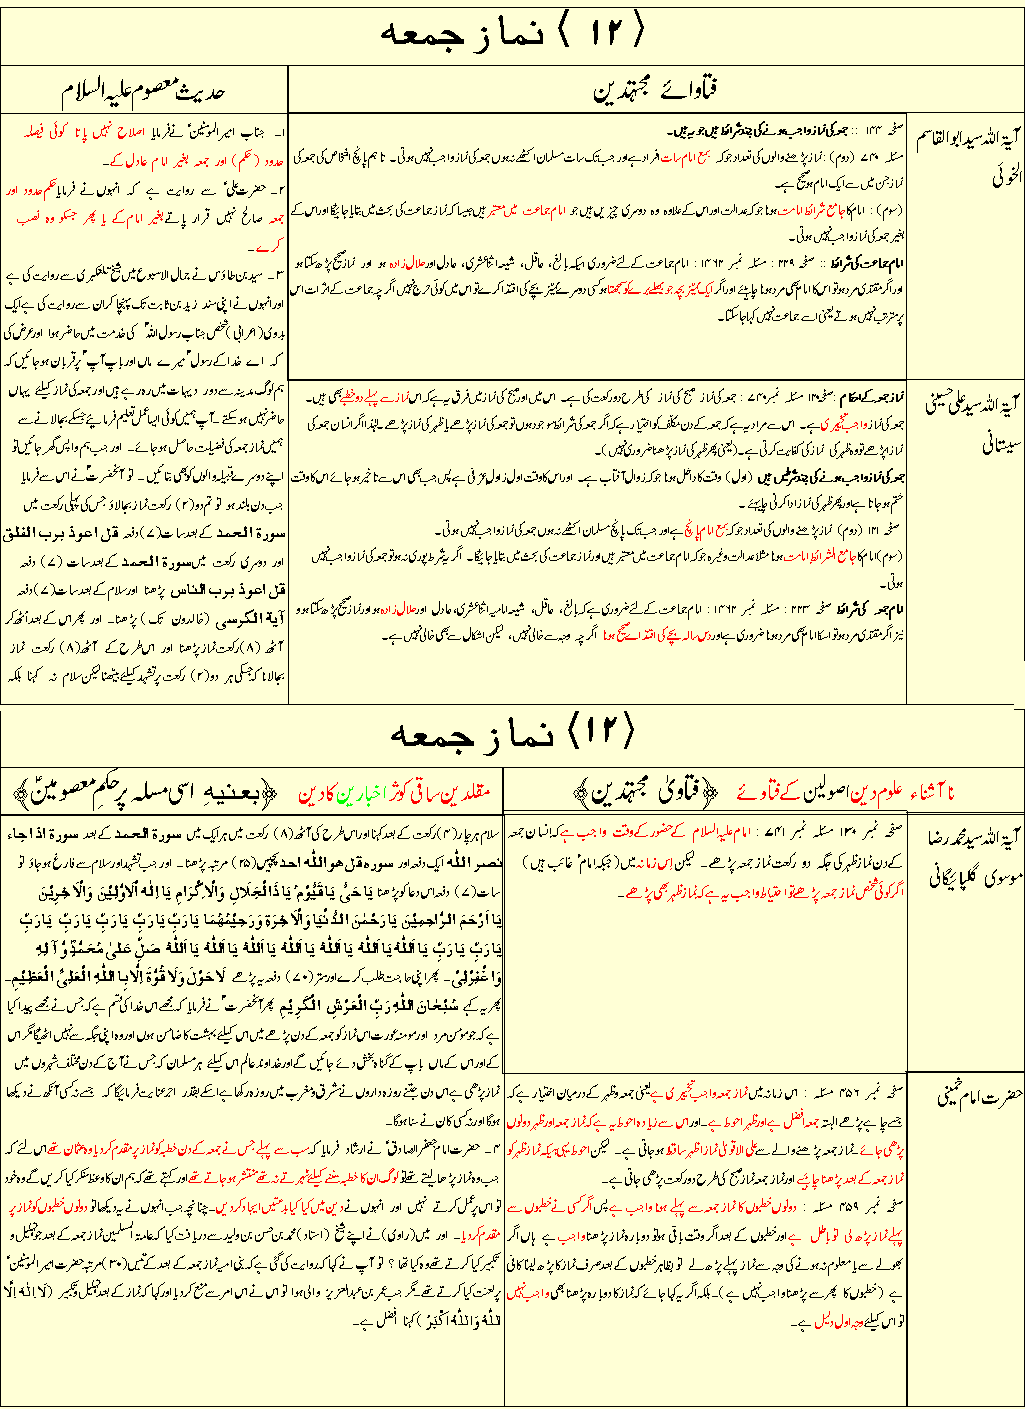 ⟨۱۲⟩ نماز جمعه
فتاوائے مجتہدین
حدیث معصوم علیہ السلام
آیۃ اللہ سید ابوالقاسم
الخوئی
صفحہ ۱۴۴ :: جمعہ کی نماز واجب ہونے کی چند شرائط ہیں جو یہ ہیں۔
مسئلہ ۷۴۰ (دوم) : نماز پڑھنے والوں کی تعداد جو کہ بمع امام سات افراد ہے اور جب تک سات مسلمان اکٹھے نہ ہوں جمعہ کی نماز واجب نہیں ہوتی۔ تاہم پانچ اشخاص کی جمعہ کی
نماز جن میں سے ایک امام ہو صحیح ہے۔
(سوم) : امام کا جامع شرائط امامت ہونا جو کہ عدالت اور اس کے علاوہ وہ دوسری چیزیں ہیں جو امام جماعت میں معتبر ہیں جیسا کہ نماز جماعت کی بحث میں بتایا جائیگا اور اس کے
بغیر جمعہ کی نماز واجب نہیں ہوتی۔
امام جماعت کی شرائط :: صفحہ ۲۲۹ : مسئلہ نمبر ۱۴۶۲ : امام جماعت کے لئے ضروری ہیکہ بالغ، عاقل، شیعہ اثنا عشری، عادل اور حلال زادہ ہو اور نماز صحیح پڑھ سکتا ہو
اور اگر مقتدی مرد ہو تو اس کا امام بھی مرد ہونا چاہیئے اور اگر ایک ممیز بچہ جو بھلے برے کو سمجھتا ہو کسی دوسرے ممیز بچے کی اقتدا کرے تو اس میں کوئی حرج نہیں اگرچہ جماعت کے اثرات اس
پر مترتب نہیں ہوتے یعنی اسے جماعت نہیں کہا جا سکتا۔
آیۃ اللہ سید علی حسینی
سیستانی
نماز جمعہ کے احکام : صفحہ ۱۲۰ مسئلہ نمبر ۷۴۰ : جمعہ کی نماز صبح کی نماز کی طرح دو رکعت کی ہے۔ اس میں اور صبح کی نماز میں فرق یہ ہے کہ اس نماز سے پہلے دو خطبے بھی ہیں۔
جمعہ کی نماز واجب تخییری ہے۔ اس سے مراد یہ ہے کہ جمعہ کے دن مکلف کو اختیار ہے کہ اگر جمعہ کی شرائط موجود ہوں تو جمعہ کی نماز پڑھے یا ظہر کی نماز پڑھے۔ لہٰذا اگر انسان جمعہ کی
نماز پڑھے تو وہ ظہر کی نماز کی کفایت کرتی ہے۔ (یعنی پھر ظہر کی نماز پڑھنا ضروری نہیں)۔
جمعہ کی نماز واجب ہونے کی چند شرطیں ہیں (اول) وقت کا داخل ہونا جو کہ زوال آفتاب ہے۔ اور اس کا وقت اول زوال عرفی ہے پس جب بھی اس سے تاخیر ہو جائے اس کا وقت
ختم ہو جاتا ہے اور پھر ظہر کی نماز ادا کرنی چاہیئے۔
صفحہ ۱۲۱ (دوم) نماز پڑھنے والوں کی تعداد جو کہ بمع امام پانچ ہے اور جب تک پانچ مسلمان اکٹھے نہ ہوں جمعہ کی نماز واجب نہیں ہوتی۔
(سوم) امام کا جامع الشرائط امامت ہونا مثلاً عدالت وغیرہ جو کہ امام جماعت میں معتبر ہیں اور نماز جماعت کی بحث میں بتایا جائیگا۔ اگر یہ شرط پوری نہ ہو تو جمعہ کی نماز واجب نہیں
ہوتی۔
امام جمعہ کی شرائط صفحہ ۲۲۳ : مسئلہ نمبر ۱۴۶۲ : امام جماعت کے لئے ضروری ہے کہ بالغ، عاقل، شیعہ امامیہ اثنا عشری، عادل اور حلال زادہ ہو اور نماز صحیح پڑھ سکتا ہو
نیز اگر مقتدی مرد ہو تو اسکا امام بھی مرد ہونا ضروری ہے اور دس سالہ بچے کی اقتدا صحیح ہونا اگرچہ وجہ سے خالی نہیں، لیکن اشکال سے بھی خالی نہیں ہے۔
۱۔ جناب امیرالمومنینؑ نے فرمایا اصلاح نہیں پاتا کوئی فیصلہ
حدود (حکم) اور جمعہ بغیر امام عادل کے۔
۲۔ حضرت علیؑ سے روایت ہے کہ انہوں نے فرمایا حکم حدود اور
جمعہ صالح نہیں قرار پاتے بغیر امام کے یا پھر جسکو وہ نصب
کرے۔
۳۔ سید بن طاؤس نے جمال الاسبوع میں شیخ تلعکبری سے روایت کی ہے
اور انہوں نے اپنی سند زید بن ثابت تک پہنچا کر ان سے روایت کی ہے ایک
بدوی (اعرابی) شخص جناب رسول اللہؐ کی خدمت میں حاضر ہوا اور عرض کی
کہ اے خدا کے رسولؐ میرے ماں اور باپ آپؐ پر قربان ہو جائیں کہ
ہم لوگ مدینہ سے دور دیہات میں رہ رہے ہیں اور جمعہ کی نماز کیلئے یہاں
حاضر نہیں ہو سکتے۔ آپ ہمیں کوئی ایسا عمل تعلیم فرمایئے جسکے بجالانے سے
ہمیں نماز جمعہ کی فضیلت حاصل ہو جائے۔ اور جب ہم واپس گھر جائیں تو
اپنے دوسرے قبیلہ والوں کو بھی بتائیں۔ تو آنحضرتؐ نے اس سے فرمایا
جب دن بلند ہو تو تم دو (۲) رکعت نماز بجالاؤ جس کی پہلی رکعت میں
سورۃ الحمد کے بعد سات (۷) دفعہ قل اعوذ برب الفلق
اور دوسری رکعت میں سورۃ الحمد کے بعد سات (۷) دفعہ
قل اعوذ برب الناس پڑھنا اور سلام کے بعد سات (۷) دفعہ
آیۃ الکرسی (خالدون تک) پڑھنا۔ اور پھر اس کے بعد اٹھ کر
آٹھ (۸) رکعت نماز پڑھنا اور اس طرح کے آٹھ (۸) رکعت نماز
بجالانا کہ جسکی ہر دو (۲) رکعت پر تشہد کیلئے بیٹھنا لیکن سلام نہ کہنا بلکہ
⟨۱۲⟩ نماز جمعه
نا آشناء علوم دین اصولین کے فتاوئے ﴿فتاویٰ مجتہدین﴾
مقلدین ساقی کوثر اخبارین کا دین ﴿بعینہٖ اسی مسلہ پر حکم معصومینؑ﴾
آیۃ اللہ سید محمد رضا
موسوی گلپائیگانی
صفحہ نمبر ۱۳۰ مسئلہ نمبر ۷۴۱ : امام علیہ السلام کے حضور کے وقت واجب ہے کہ انسان جمعہ
کے دن نماز ظہر کی جگہ دو رکعت نماز جمعہ پڑھے۔ لیکن اس زمانہ میں (جبکہ امامؑ غائب ہیں)
اگر کوئی شخص نماز جمعہ پڑھے تو احتیاط واجب یہ ہے کہ نماز ظہر بھی پڑھے۔
حضرت امام خمینی
صفحہ نمبر ۴۵۶ مسئلہ : اس زمانہ میں نماز جمعہ واجب تخییری ہے یعنی جمعہ و ظہر کے درمیان اختیار ہے کہ
جسے چاہے پڑھے البتہ جمعہ افضل ہے اور ظہر احوط ہے۔ اور اس سے زیادہ احوط یہ ہے کہ نماز جمعہ اور ظہر دونوں
پڑھی جائے نماز جمعہ پڑھنے والے سے علی الاقویٰ نماز ظہر ساقط ہو جاتی ہے۔ لیکن احوط یہی ہیکہ نماز ظہر کو
نماز جمعہ کے بعد پڑھنا چاہیے اور نماز جمعہ نماز صبح کی طرح دو رکعت پڑھی جاتی ہے۔
صفحہ نمبر ۴۵۹ مسئلہ : دونوں خطبوں کا نماز جمعہ سے پہلے ہونا واجب ہے پس اگر کسی نے خطبوں سے
پہلے نماز پڑھ لی تو باطل ہے اور خطبوں کے بعد اگر وقت باقی ہو تو دوبارہ نماز پڑھنا واجب ہے ہاں اگر
بھولے سے یا معلوم نہ ہونے کی وجہ سے نماز پہلے پڑھ لے تو بظاہر خطبوں کے بعد صرف نماز کا پڑھ لینا کافی
ہے (خطبوں کا پھر سے پڑھنا واجب نہیں ہے)۔ بلکہ اگر یہ کہا جائے کہ نماز کا دوبارہ پڑھنا بھی واجب نہیں
تو اس کیلئے وجہ اول دلیل ہے۔
سلام ہر چار (۴) رکعت کے بعد کہنا اور اس طرح کی آٹھ (۸) رکعت میں ہر ایک میں سورۃ الحمد کے بعد سورۃ اذا جاء
نصر اللہ ایک دفعہ اور سورہ قل ھو اللہ احد پچیس (۲۵) مرتبہ پڑھنا۔ اور جب تشہد اور سلام سے فارغ ہو جاؤ تو
سات (۷) دفعہ اس دعا کو پڑھنا یَا حَیُّ یَا قَیُّوْمُ یَا ذَا الْجَلَالِ وَالْاِکْرَامِ یَا اِلٰہَ الْاَوَّلِیْنَ وَالْاٰخِرِیْنَ
یَا اَرْحَمَ الرَّاحِمِیْنَ یَا رَحْمٰنَ الدُّنْیَا وَالْاٰخِرَةِ وَرَحِیْمَهُمَا یَارَبِّ یَارَبِّ یَارَبِّ یَارَبِّ یَارَبِّ
یَارَبِّ یَارَبِّ یَا اَللہُ یَا اَللہُ یَا اَللہُ یَا اَللہُ یَا اَللہُ یَا اَللہُ یَا اَللہُ صَلِّ عَلیٰ مُحَمَّدٍ وَّ آلِهِ
وَاغْفِرْلِیْ۔ پھر اپنی حاجت طلب کرے اور ستر (۷۰) دفعہ یہ پڑھے لَا حَوْلَ وَلَا قُوَّةَ اِلَّا بِاللہِ الْعَلِیِّ الْعَظِیْمِ۔
پھر یہ کہے سُبْحَانَ اللہِ رَبِّ الْعَرْشِ الْکَرِیْمِ پھر آنحضرتؐ نے فرمایا کہ مجھے اس خدا کی قسم ہے کہ جس نے مجھے پیدا کیا
ہے کہ جو مومن مرد اور مومنہ عورت اس نماز کو جمعہ کے دن پڑھے میں اس کیلئے بہشت کا ضامن ہوں اور وہ اپنی جگہ سے نہیں اٹھیگا مگر اس
کے اور اس کے ماں باپ کے گناہ بخش دئے جائیں گے اور خداوند عالم اس کیلئے ہر مسلمان کہ جس نے آج کے دن مختلف شہروں میں
نماز پڑھی ہے اس دن جتنے روزہ داروں نے مشرق و مغرب میں روزہ رکھا ہے اسکے بقدر اجر عنایت فرمائیگا کہ جسے نہ کسی آنکھ نے دیکھا
ہوگا اور نہ کسی کان نے سنا ہوگا۔
۴۔ حضرت امام جعفر الصادقؑ نے ارشاد فرمایا کہ سب سے پہلے جس نے جمعہ کے دن خطبہ کو نماز پر مقدم کر دیا وہ عثمان تھے اس لئے کہ
جب وہ نماز پڑھا لیتے تھے تو لوگ ان کا خطبہ سننے کیلئے ٹھہرتے نہ تھے منتشر ہو جاتے تھے اور کہتے تھے کہ ہم ان کا وعظ سنکر کیا کریں گے وہ خود
تو اس پر عمل کرتے نہیں اور انہوں نے دین میں کیا کیا بدعتیں ایجاد کر دیں۔ چنانچہ جب انہوں نے یہ دیکھا تو دونوں خطبوں کو نماز پر
مقدم کر دیا۔ اور میں (راوی) نے اپنے شیخ (استاد) محمد بن حسن بن ولید سے دریافت کیا کہ عامۃ المسلمین نماز جمعہ کے بعد جو تہلیل و
تکبیر کیا کرتے تھے وہ کیا تھا؟ تو آپ نے کہا کہ روایت کی گئی ہے کہ بنی امیہ نماز جمعہ کے بعد کے تیس (۳۰) مرتبہ حضرت امیرالمومنینؑ
پر لعنت کیا کرتے تھے۔ مگر جب عمر بن عبدالعزیز والی ہوا تو اس نے اس امر سے منع کر دیا اور کہا کہ نماز کے بعد تہلیل و تکبیر (لَا اِلٰہَ اِلَّا
اللہُ وَاللہُ اَکْبَرُ) کہنا افضل ہے۔